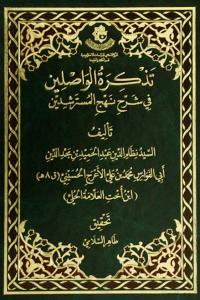 تذكرة الواصلين
في شرح نهج المسترشدين
تأليف
السيد نظام الدين عبد الحميد بن مجد الدين
أبي الفوارس محمد بن علي الأعرج الحسيني (ق ٨ هـ)
(ابن أخت العلامة الحلي)
تحقيق
طاهر السلامي